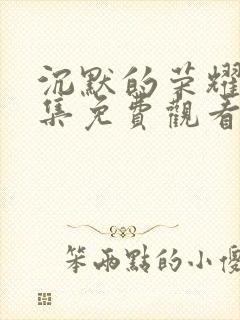 沉默的荣耀
集免費觀看
笨兩點的小傻